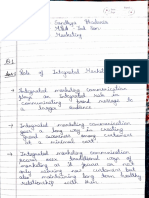 Sandhya
MBA IInd Sem
Marketing
Role of Integrated Market
→ Integrated marketing communication
plays Integrated role in
communicating brand message to
larger Audience
→ Integrated marketing communication
goes a long way in creating
brand awareness among customers
at a minimal cost
→ Integrated marketing communication
scores over traditional ways of
marketing as it focuses on not
only winning new customers but
also maintaining long term healthy
relationship with them